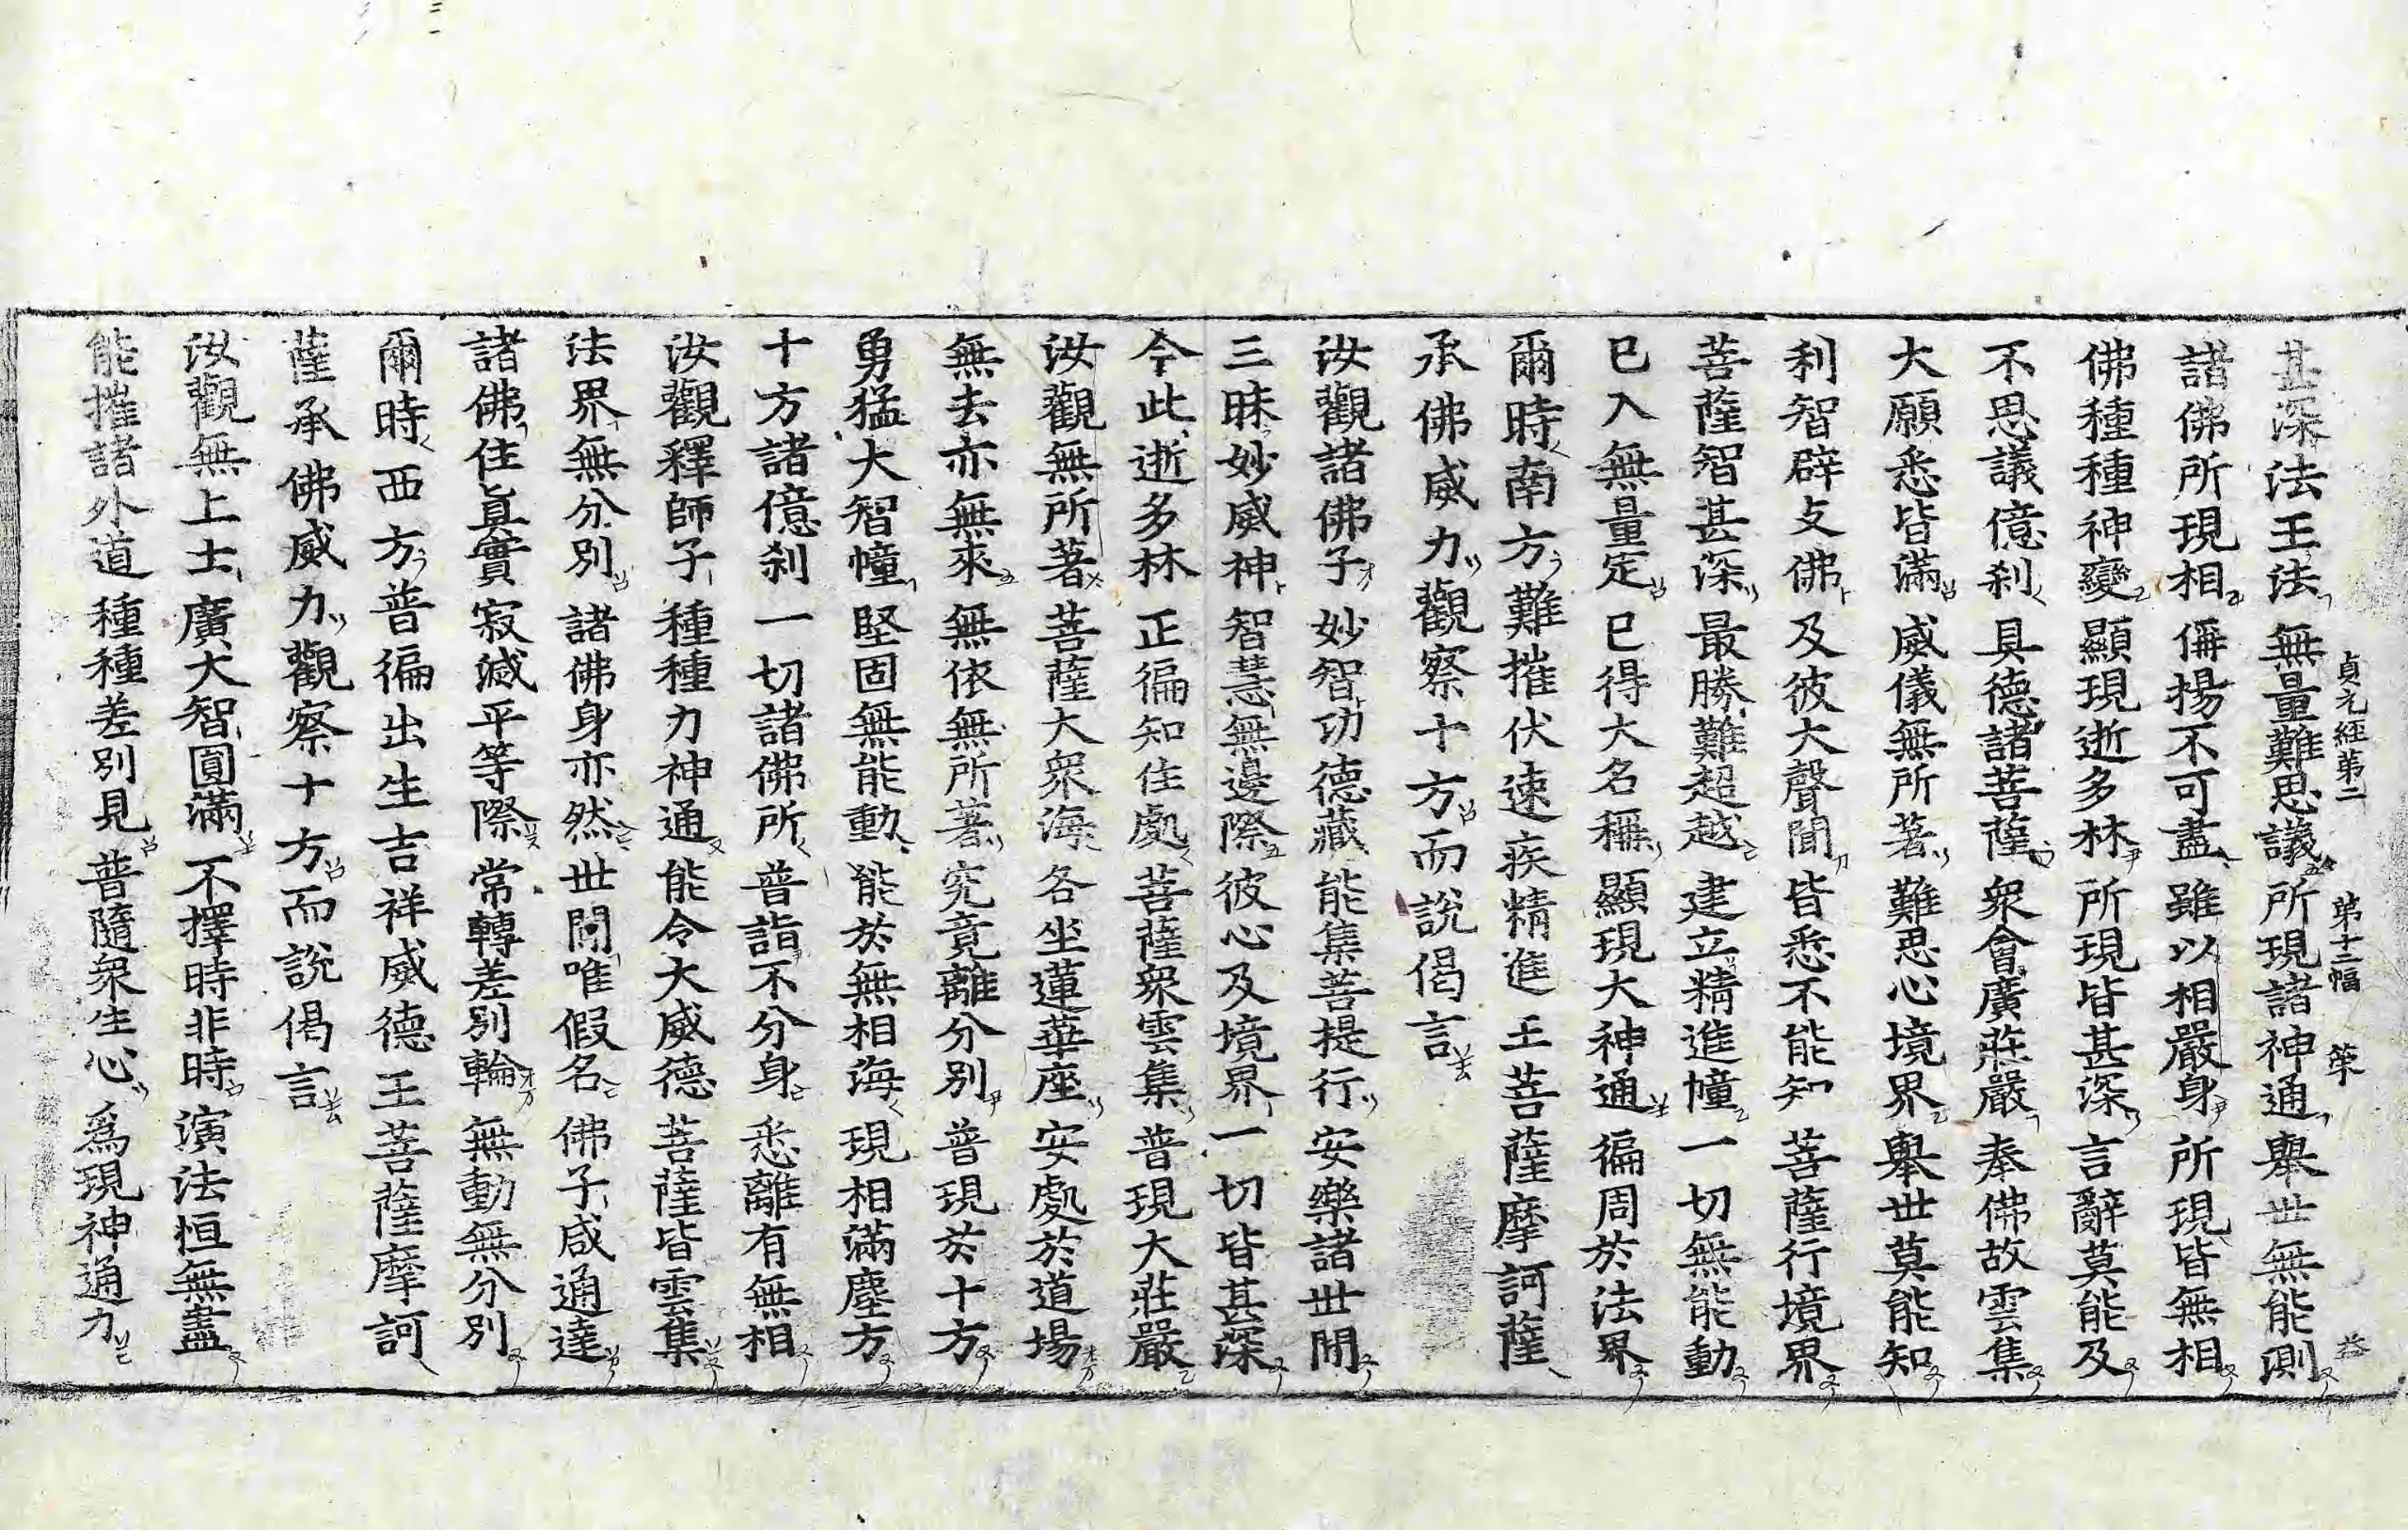 甚深法王法 無量難思議 所現諸神通 舉世無能測
貞元經第二 第十二幅 華
諸佛所現相 偁揚不可盡 雖以相嚴身 所現皆無相
佛種種神變 顯現逝多林 所現皆甚深 言辭莫能及
不思議億刹 具德諸菩薩 衆會廣莊嚴 奉佛故雲集
大願悉皆滿 威儀無所著 難思心境界 舉世莫能知
利智辟支佛 及彼大聲聞 皆悉不能知 菩薩行境界
菩薩智甚深 最勝難超越 建立精進幢 一切無能動
已入無量定 已得大名稱 顯現大神通 徧周於法界
爾時南方難摧伏速疾精進王菩薩摩訶薩
承佛威力觀察十方而說偈言
汝觀諸佛子 妙智功德藏 能集菩提行 安樂諸世間
三昧妙威神 智慧無邊際 彼心及境界 一切皆甚深
今此逝多林 正徧知住處 菩薩衆雲集 普現大莊嚴
汝觀無所著 菩薩大衆海 各坐蓮華座 安處於道場
無去亦無來 無依無所著 究竟離分別 普現於十方
勇猛大智幢 堅固無能動 能於無相海 現相滿塵方
十方諸億刹 一切諸佛所 普詣不分身 悉離有無相
汝觀釋師子 種種力神通 能令大威德 菩薩皆雲集
法界無分別 諸佛身亦然 世間唯假名 佛子咸通達
諸佛住眞實 寂滅平等際 常轉差別輪 無動無分別
爾時西方普徧出生吉祥威德王菩薩摩訶
薩承佛威力觀察十方而說偈言
汝觀無上士 廣大智圓滿 不擇時非時 演法恒無盡
能摧諸外道 種種差別見 普隨衆生心 爲現神通力